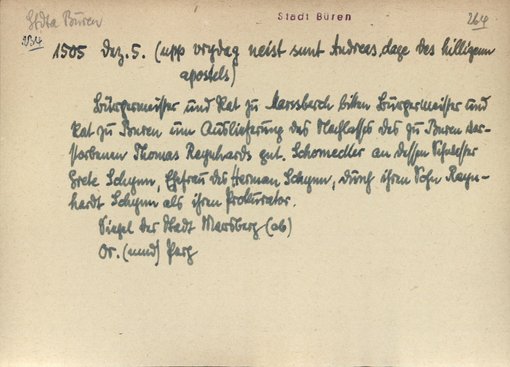 Stdta Büren
Stadt Büren
264
1505 Dez. 5. (upp vrydag neist sunt Andreas dage des hilligenn
apostels)
Bürgermeister und Rat zu Marsberch bitten Bürgermeister und
Rat zu Buren um Auslieferung des Nachlasses des zu Buren ver-
storbenen Thomas Reynhards gnt. Schomecker an dessen Schwester
Grete Schynn, Ehefrau des Herman Schynn, durch ihren Sohn Reyn-
hardt Schynn als ihren Prokurator.
Siegel der Stadt Marsberg (ab)
Or. (mnd) Perg